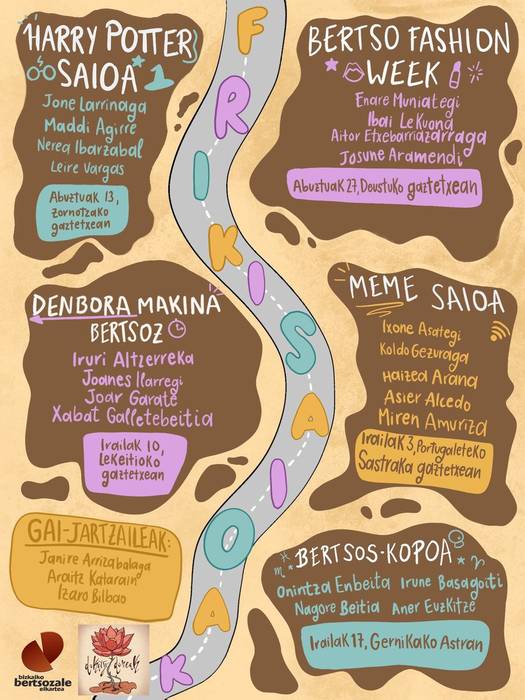 FRIKI SAIOAK
HARRY POTTER
SAIOA
Jone Larrinaga
Maddi Agirre
Nerea Ibarzabal
Leire Vargas
Abuztuak 13,
Zornotzako
gaztetxean
BERTSO FASHION
WEEK
Enare Muniategi
Ibai Lekuona
Aitor Etxebarriazarraga
Josune Aramendi
Abuztuak 27, Deustuko gaztetxean
DENBORA MAKINA
BERTSOZ
Iruri Altzerreka
Joanes Illarregi
Joar Garate
Xabat Galletebeitia
Irailak 10,
Lekeitioko
gaztetxean
MEME SAIOA
Ixone Asategi
Koldo Gezuraga
Haizea Arana
Asier Alcedo
Miren Amuriza
Irailak 3, Portugaleteko
Sastraka gaztetxean
GAI-JARTZAILEAK:
Janire Arrizabalaga
Araitz Katarain
Izaro Bilbao
BERTSOS-KOPOA
Onintza Enbeita Irune Basagoiti
Nagore Beitia Aner Euzkitze
Irailak 17, Gernikako Astran
bizkaiko
bertsozale
elkartea